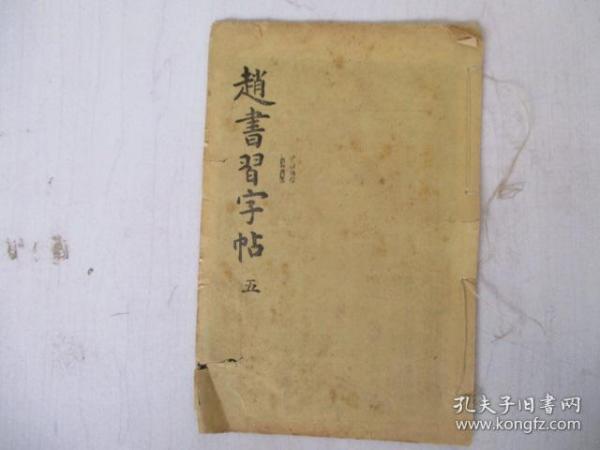 趙書習字帖
五
孔夫子旧書网
www.kongfz.com